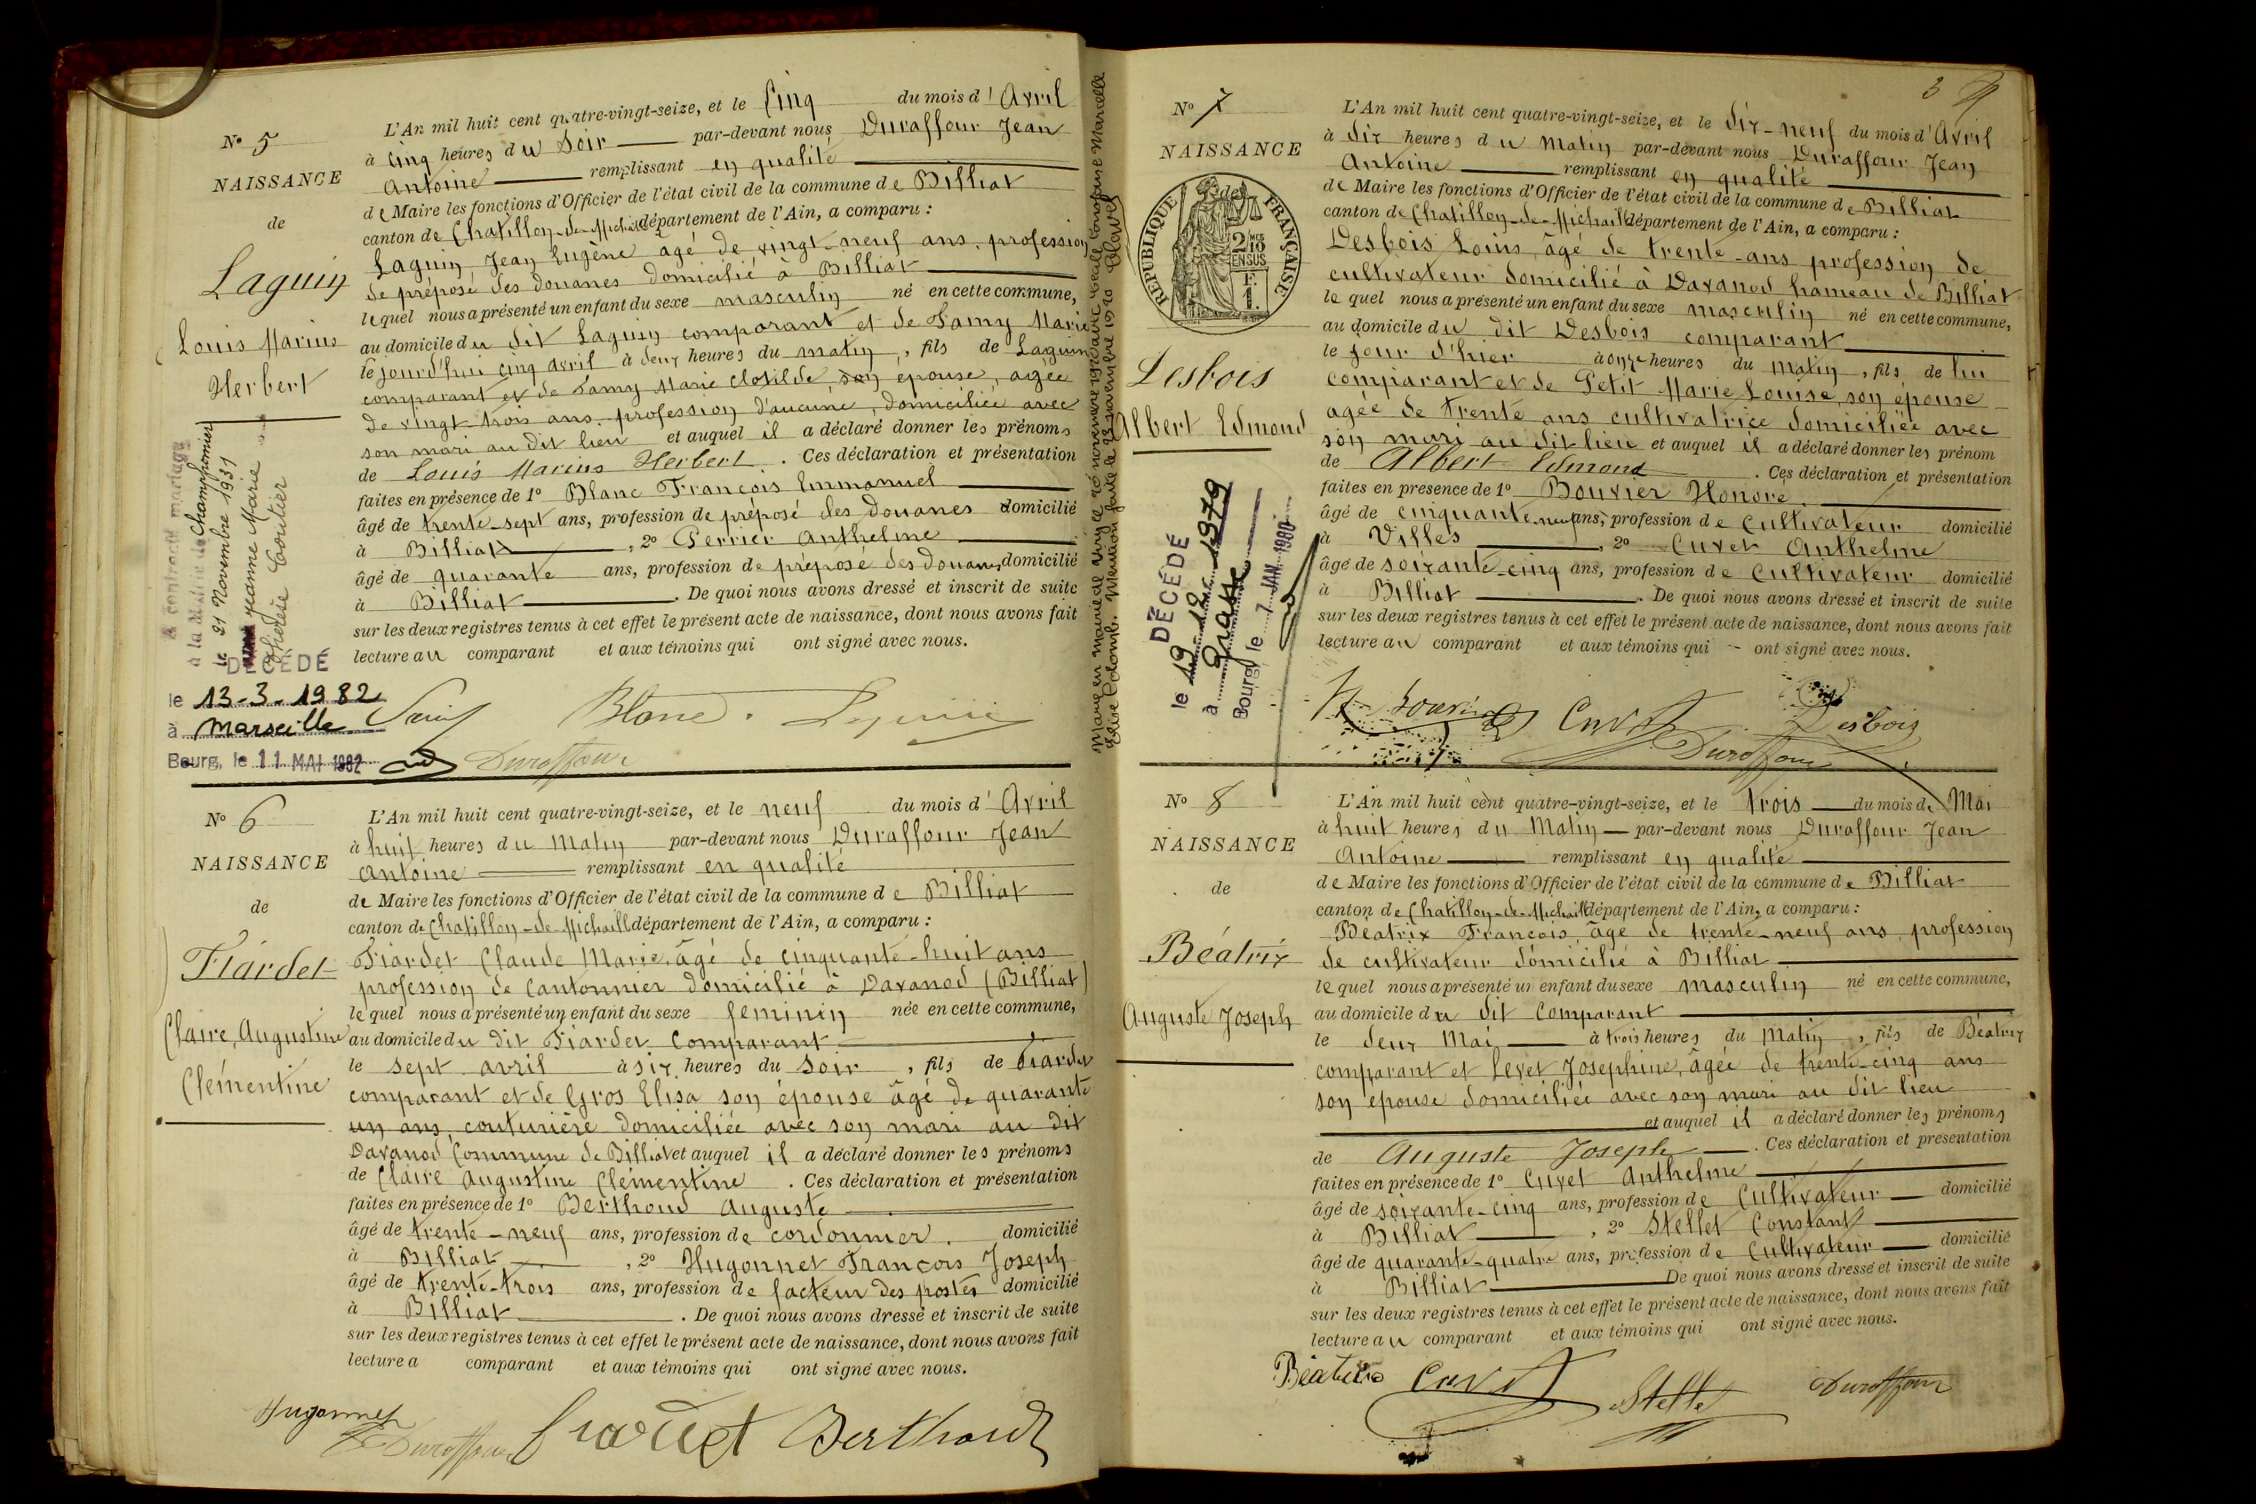 N° 5
NAISSANCE
de
Laguin
Louis Marius
Herbert
L'An mil huit cent quatre-vingt-seize, et le Cinq du mois d'Avril
à cinq heures du Soir par-devant nous Duraffour Jean
Antoine remplissant en qualité
de Maire les fonctions d'Officier de l'état civil de la commune de Billiat
canton de Chatillon-de-Michaille département de l'Ain, a comparu :
Laguin Jean Eugène agé de vingt-neuf ans, profession
de préposé des douanes domicilié à Billiat
lequel nous a présenté un enfant du sexe masculin né en cette commune,
au domicile du dit Laguin comparant et de Lamy Marie
le jourd'hui cinq avril à deux heures du matin, fils de Laguin
comparant et de Lamy Marie Clotilde, son épouse, agée
de vingt trois ans, profession d'aucune, domiciliée avec
son mari au dit lieu et auquel il a déclaré donner les prénoms
de Louis Marius Herbert. Ces déclaration et présentation
faites en présence de 1° Blanc François Emmanuel
âgé de trente-sept ans, profession de préposé des douanes domicilié
à Billiat, 2° Perrier Anthelme
âgé de quarante ans, profession de préposé des douanes domicilié
à Billiat. De quoi nous avons dressé et inscrit de suite
sur les deux registres tenus à cet effet le présent acte de naissance, dont nous avons fait
lecture au comparant et aux témoins qui ont signé avec nous.
A contracté mariage
à la Mairie de Champfromier
le 21 Novembre 1931
avec Jeanne Marie
Thérèse Coutier
DÉCÉDÉ
le 13-3-1982
à Marseille
Bourg, le 11 MAI 1982
Blanc Laguin
Duraffour
N° 6
NAISSANCE
de
Fiardet
Claire, Augustine
Clémentine
L'An mil huit cent quatre-vingt-seize, et le neuf du mois d'Avril
à huit heures du Matin par-devant nous Duraffour Jean
Antoine remplissant en qualité
de Maire les fonctions d'Officier de l'état civil de la commune de Billiat
canton de Chatillon-de-Michaille département de l'Ain, a comparu :
Fiardet Claude Marie, âgé de cinquante-huit ans
profession de Cantonnier domicilié à Davanod (Billiat)
lequel nous a présenté un enfant du sexe feminin née en cette commune,
au domicile du dit Fiardet Comparant
le sept avril à six heures du Soir, fils de Fiardet
comparant et de Gros Elisa son épouse âgé de quarante
un ans, couturière domiciliée avec son mari au dit
Davanod Commune de Billiat et auquel il a déclaré donner les prénoms
de Claire Augustine Clémentine. Ces déclaration et présentation
faites en présence de 1° Berthoud Auguste
âgé de trente-neuf ans, profession de cordonnier. domicilié
à Billiat, 2° Hugonnet François Joseph
âgé de trente-trois ans, profession de facteur des postes domicilié
à Billiat. De quoi nous avons dressé et inscrit de suite
sur les deux registres tenus à cet effet le présent acte de naissance, dont nous avons fait
lecture a comparant et aux témoins qui ont signé avec nous.
Hugonnet Duraffour Fiardet Berthoud
3
N° 7
NAISSANCE
de
RÉPUBLIQUE FRANÇAISE
2 10 MES
EN SUS
1 F.
Desbois
Albert Edmond
DÉCÉDÉ
le 19-12-1979
à Grasse
Bourg, le 7 JAN. 1980
L'An mil huit cent quatre-vingt-seize, et le dix-neuf du mois d'Avril
à dix heures du Matin par-devant nous Duraffour Jean
Antoine remplissant en qualité
de Maire les fonctions d'Officier de l'état civil de la commune de Billiat
canton de Chatillon-de-Michaille département de l'Ain, a comparu :
Desbois Louis, âgé de trente-ans profession de
cultivateur domicilié à Davanod hameau de Billiat
lequel nous a présenté un enfant du sexe masculin né en cette commune,
au domicile du dit Desbois comparant
le jour d'hier à onze heures du matin, fils de lui
comparant et de Petit Marie Louise, son épouse
agée de trente ans cultivatrice domiciliée avec
son mari au dit lieu et auquel il a déclaré donner les prénom
de Albert Edmond. Ces déclaration et présentation
faites en présence de 1° Bouvier Honoré
âgé de cinquante-neuf ans, profession de cultivateur domicilié
à Villes, 2° Cuvet Anthelme
âgé de soixante-cinq ans, profession de Cultivateur domicilié
à Billiat. De quoi nous avons dressé et inscrit de suite
sur les deux registres tenus à cet effet le présent acte de naissance, dont nous avons fait
lecture au comparant et aux témoins qui ont signé avec nous.
H Bouvier Cuvet Desbois
Duraffour
N° 8
NAISSANCE
de
Béatrix
Auguste Joseph
L'An mil huit cent quatre-vingt-seize, et le trois du mois de Mai
à huit heures du Matin par-devant nous Duraffour Jean
Antoine remplissant en qualité
de Maire les fonctions d'Officier de l'état civil de la commune de Billiat
canton de Chatillon-de-Michaille département de l'Ain, a comparu :
Béatrix François, âgé de trente-neuf ans, profession
de cultivateur domicilié à Billiat
lequel nous a présenté un enfant du sexe masculin né en cette commune,
au domicile du dit Comparant
le deux Mai à trois heures du Matin, fils de Béatrix
comparant et Levet Josephine, âgée de trente-cinq ans
son épouse domiciliée avec son mari au dit lieu
et auquel il a déclaré donner les prénoms
de Auguste Joseph. Ces déclaration et présentation
faites en présence de 1° Cuvet Anthelme
âgé de soixante-cinq ans, profession de Cultivateur domicilié
à Billiat, 2° Stellet Constant
âgé de quarante-quatre ans, profession de Cultivateur domicilié
à Billiat De quoi nous avons dressé et inscrit de suite
sur les deux registres tenus à cet effet le présent acte de naissance, dont nous avons fait
lecture au comparant et aux témoins qui ont signé avec nous.
Béatrix Cuvet Stellet Duraffour